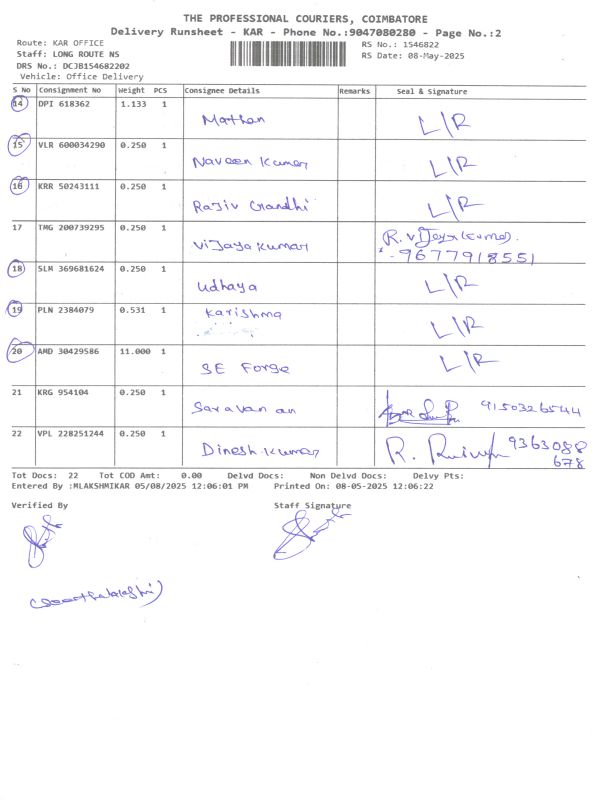 THE PROFESSIONAL COURIERS, COIMBATORE
Delivery Runsheet - KAR - Phone No.:9047080280 - Page No.:2
Route: KAR OFFICE RS No.: 1546822
Staff: LONG ROUTE NS RS Date: 08-May-2025
DRS No.: DCJB154682202
Vehicle: Office Delivery
S No Consignment No Weight PCS Consignee Details Remarks Seal & Signature
14 DPI 618362 1.133 1 Mathan L/R
15 VLR 600034290 0.250 1 Naveen Kumar L/R
16 KRR 50243111 0.250 1 Rajiv Gandhi L/R
17 TMG 200739295 0.250 1 Vijaya Kumar R. Vijaya Kumar.
9677918551
18 SLM 369681624 0.250 1 Udhaya L/R
19 PLN 2384079 0.531 1 Karishma L/R
20 AMD 30429586 11.000 1 SE Forge L/R
21 KRG 954104 0.250 1 Saravanan 9150326544
22 VPL 228251244 0.250 1 Dinesh Kumar R. 9363088
678
Tot Docs: 22 Tot COD Amt: 0.00 Delvd Docs: Non Delvd Docs: Delvy Pts:
Entered By :MLAKSHMIKAR 05/08/2025 12:06:01 PM Printed On: 08-05-2025 12:06:22
Verified By Staff Signature